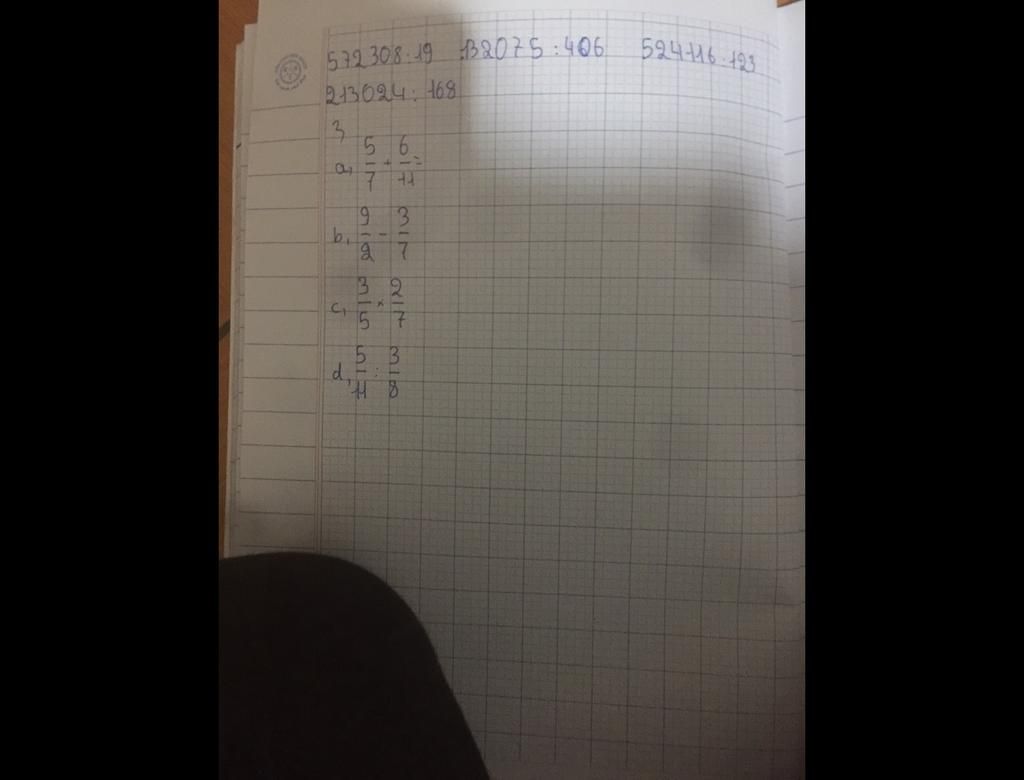 572308.19 132075:406 524116.123
213024:168
3
a, 5/7 + 6/11 =
b, 9/2 - 3/7
c, 3/5 × 2/7
d, 5/11 : 3/8